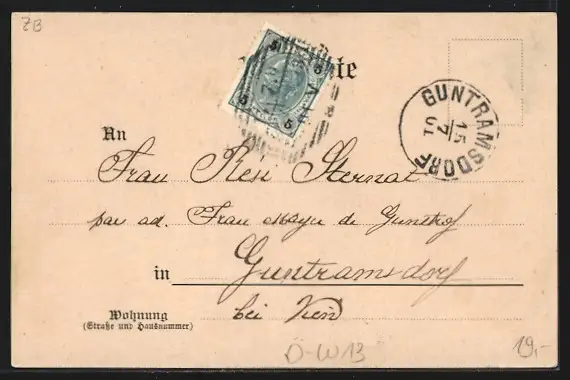 ZB
5 5
5 5
te
GUNTRAMSDORF
15
7
01
An
Frau Resi Sternat
per ad. Frau Mayer de Gunthof
in Guntramsdorf
bei Wien
Wohnung
(Straße und Hausnummer)
Ö-W13
19,-